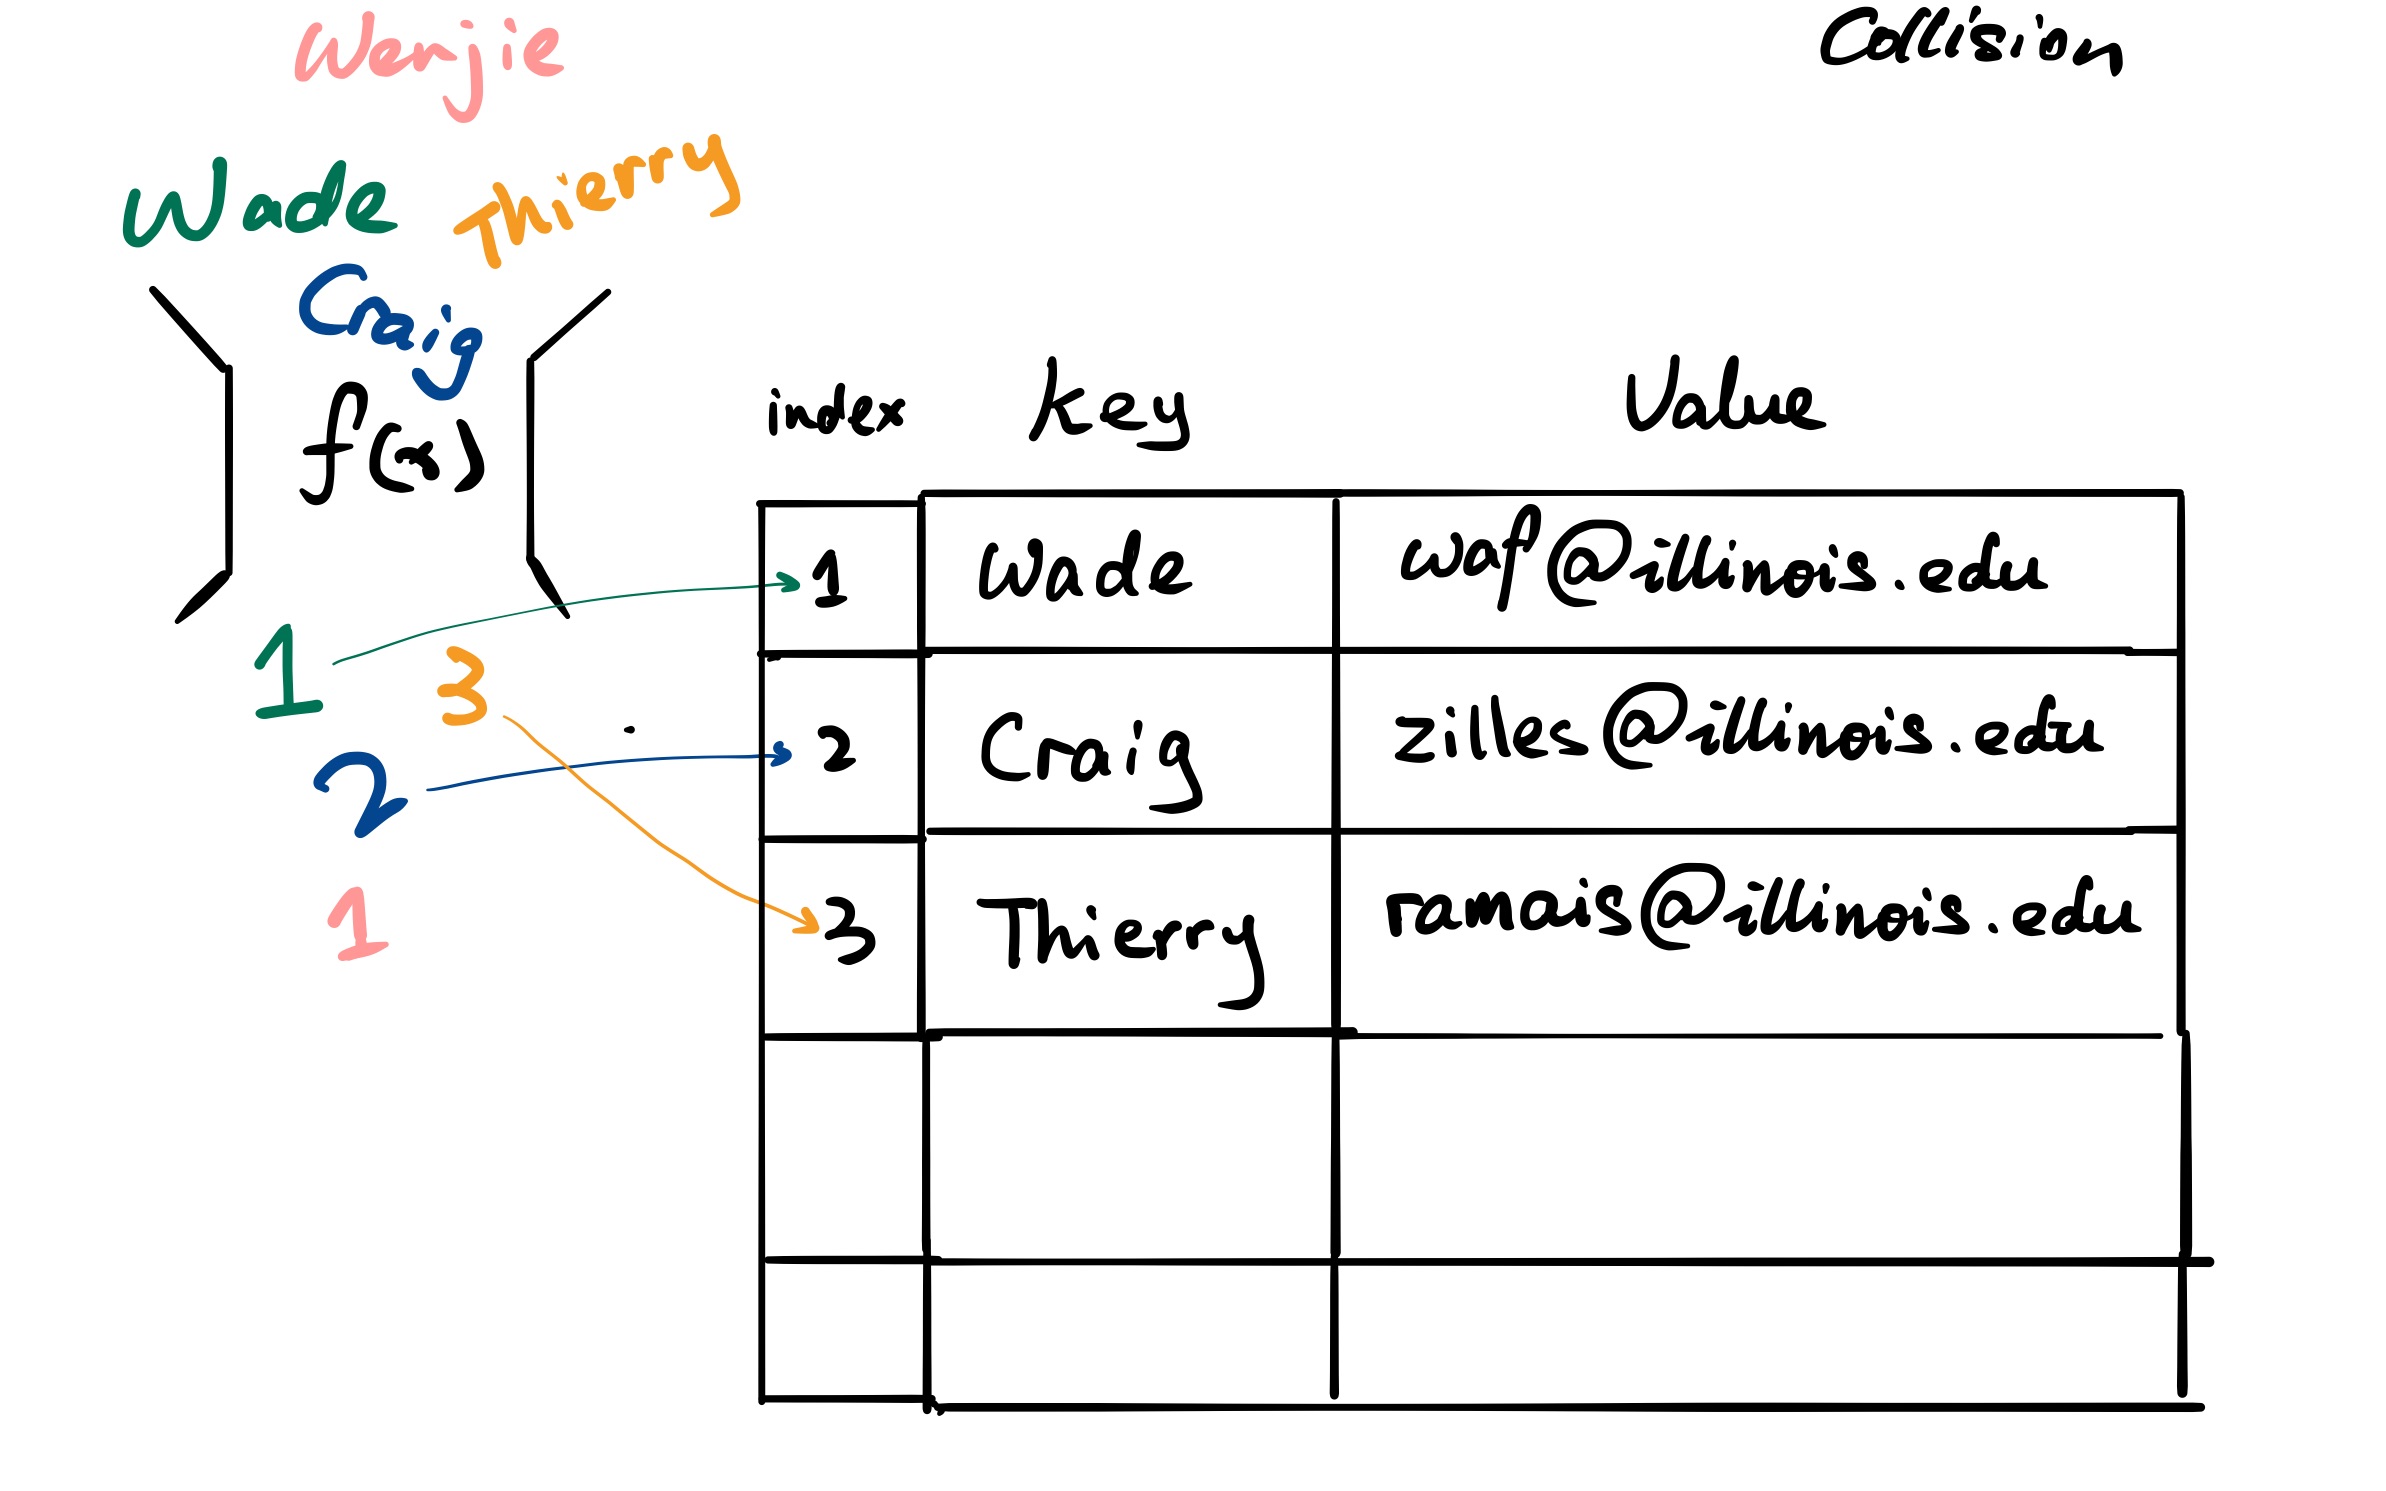 Wenjie
Collision
Wade
Thierry
Craig
f(x)
index key Value
1 Wade waf@illinois.edu
2 Craig zilles@illinois.edu
3 Thierry ramais@illinois.edu
1
3
2
1